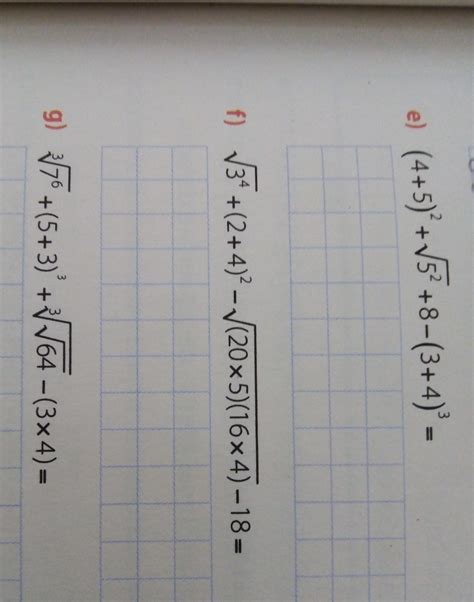 e) (4+5)² + √5² + 8 − (3+4)³ =
f) √3⁴ + (2+4)² − √(20×5)(16×4) − 18 =
g) ∛7⁶ + (5+3)³ + ∛√64 − (3×4) =